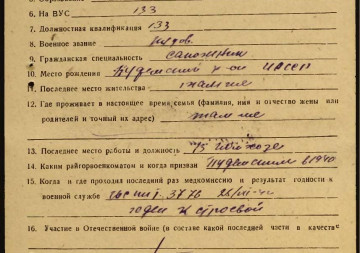 6. На ВУС 133
7. Должностная квалификация 133
8. Военное звание рядов.
9. Гражданская специальность сапожник
10. Место рождения
11. Последнее место жительства там же
12. Где проживает в настоящее время семья (фамилия, имя и отчество жены или
родителей и точный их адрес) там же
13. Последнее место работы и должность
14. Каким райгорвоенкоматом и когда призван в 1940
15. Когда и где проходил последний раз медкомиссию и результат годности к
военной службе
годен к строевой
16. Участие в Отечественной войне (в составе какой последней части в качеств